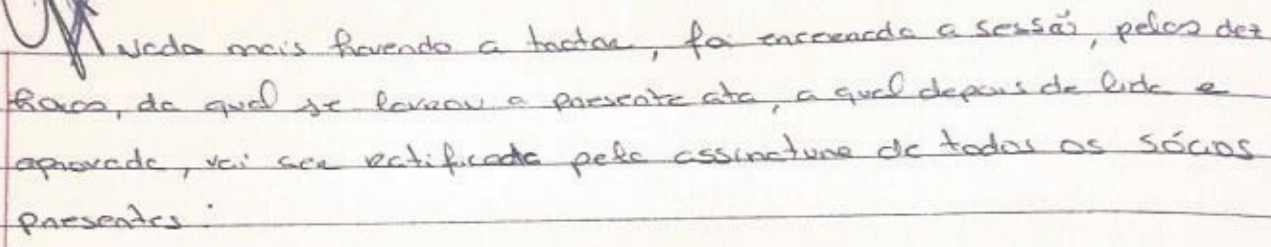 Nada mais havendo a tratar, foi encerrada a sessão, pelas dez
horas, da qual se lavrou a presente ata, a qual depois de lida e
aprovada, vai ser ratificada pela assinatura de todos os sócios
presentes.